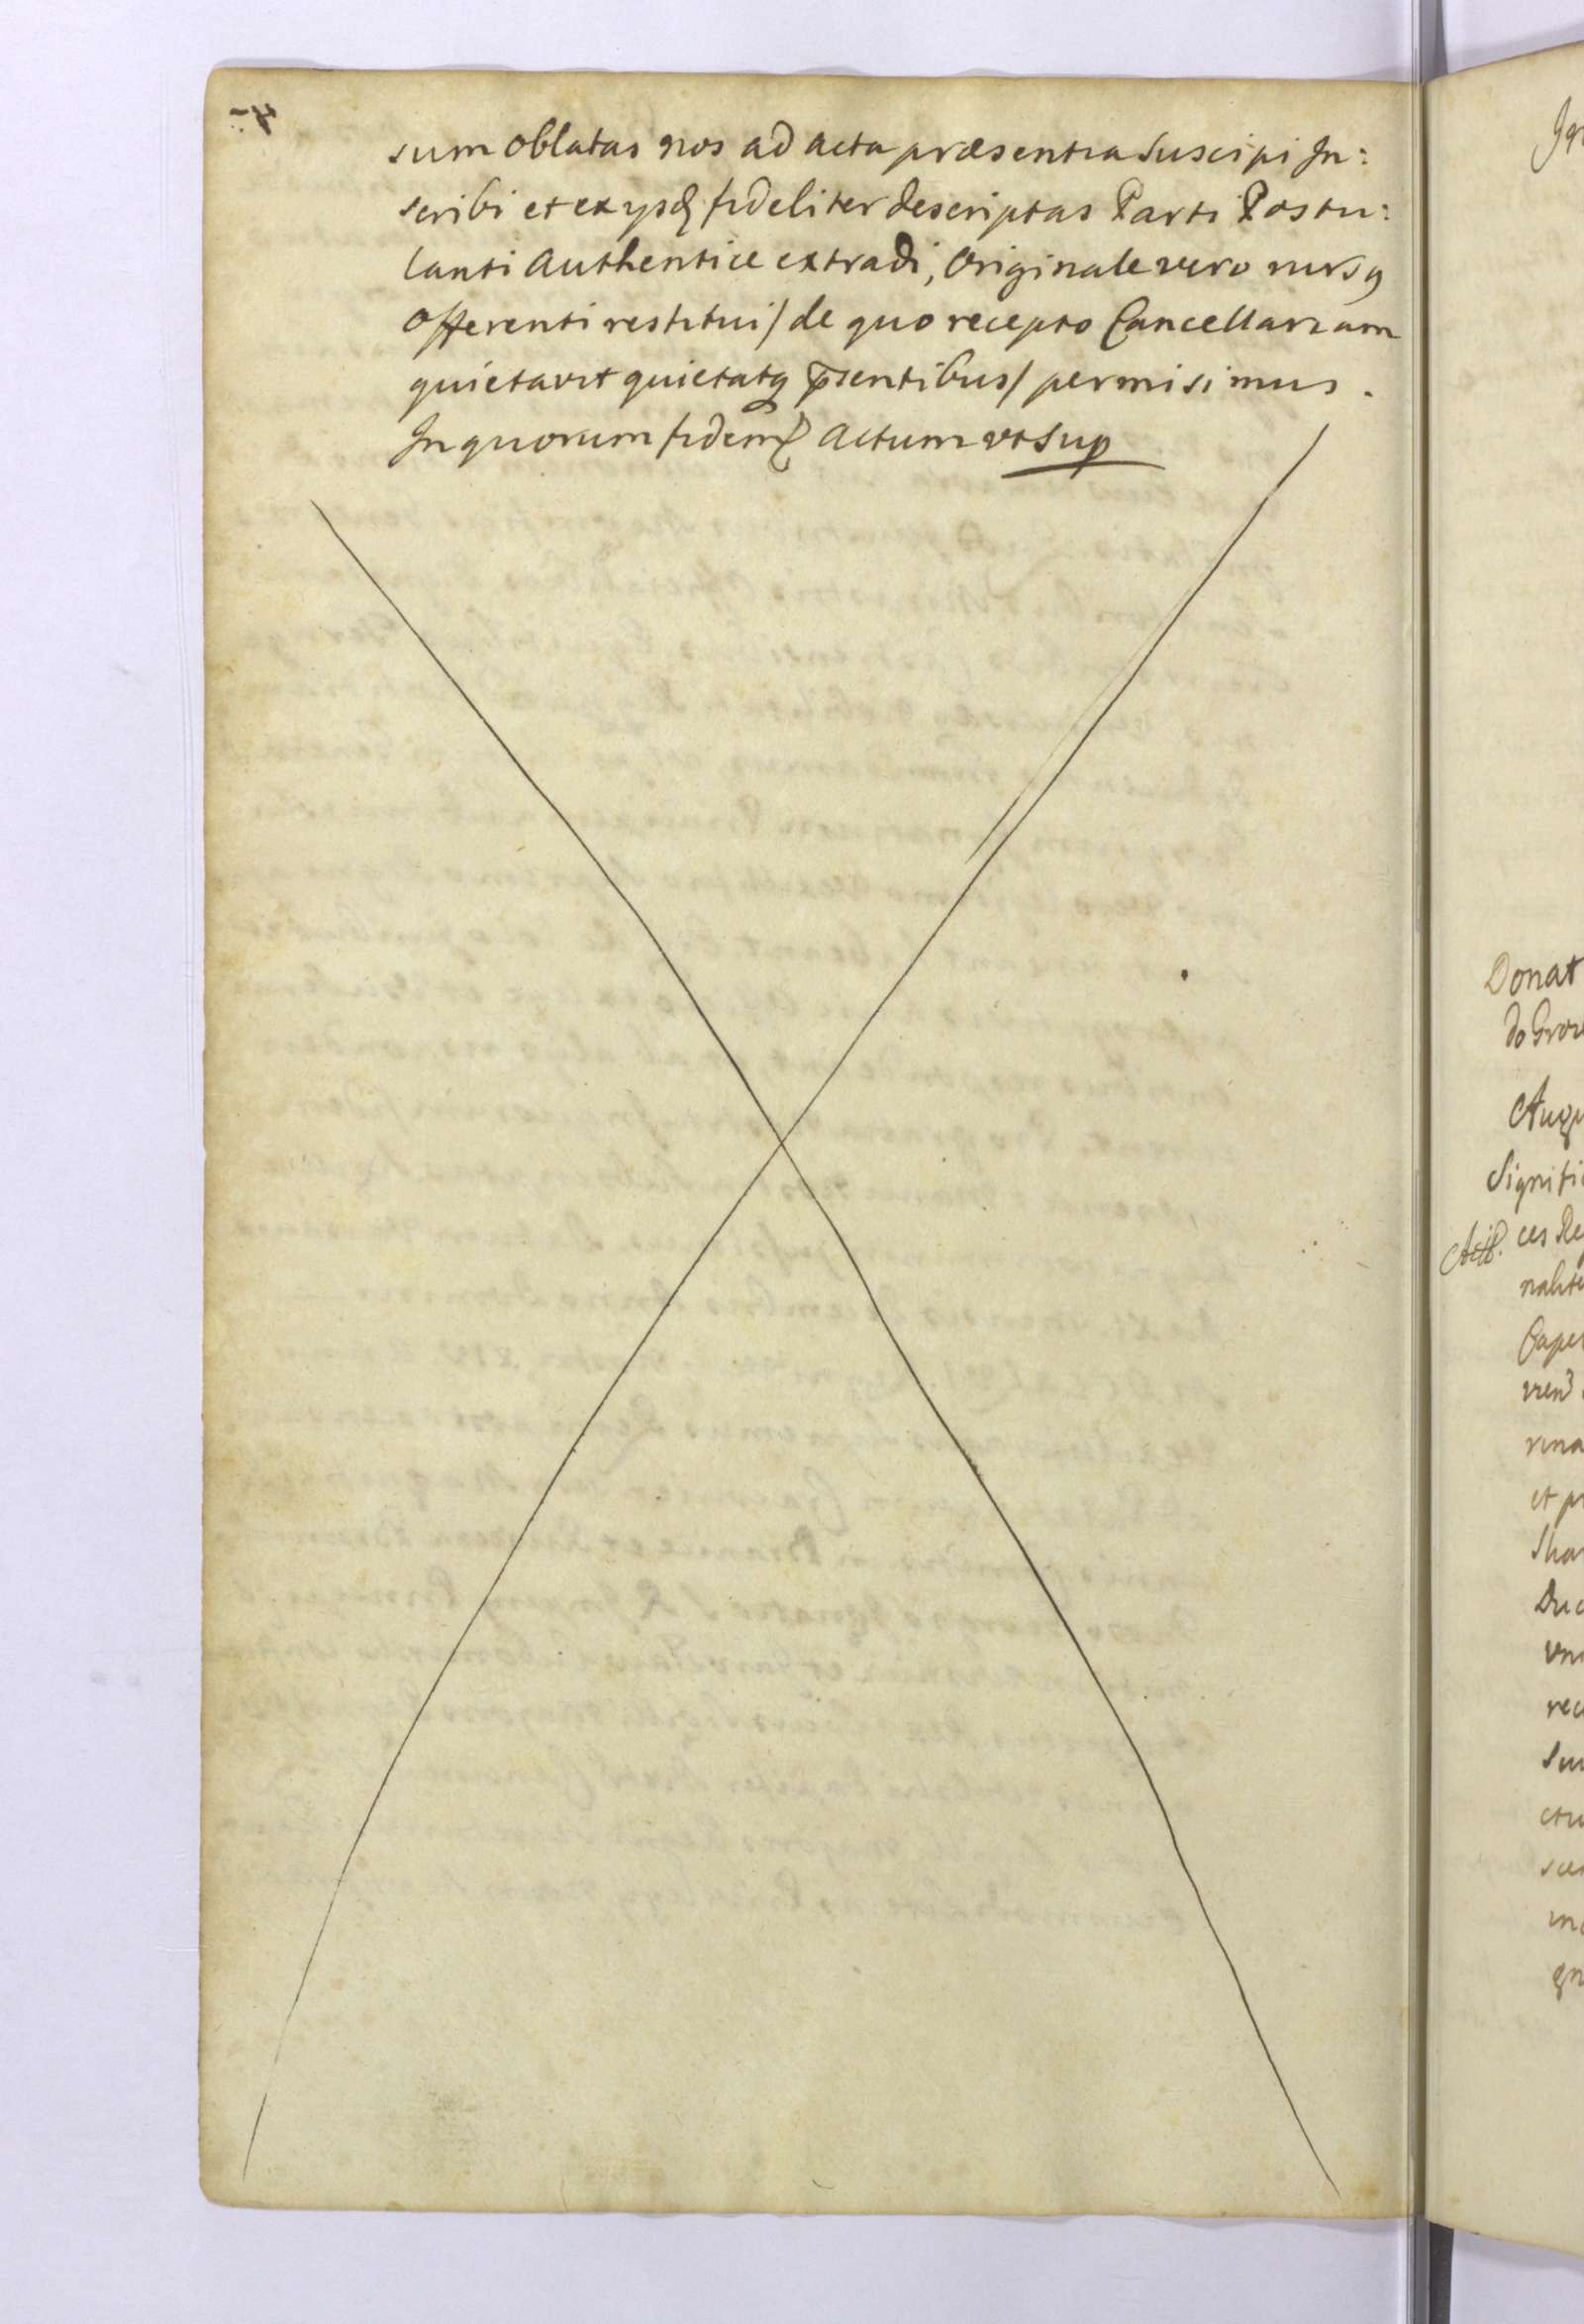 sum oblatas nos ad acta præsentia Suscipi In:
scribi et ex ysdꝫ fideliter descriptas Parti Postu:
lanti Authentice extradi, Originale vero rursꝫ
Offerenti restitui / de quo recepto Cancellariam
quietavit quietatqꝫ p̄sentibus / permisimus.
In quorum fidem Actum vt Sup
Donat
do Gro
Aug
Signifi
Actb.
ces Re
nalite
Cape
vrina
et pr
Duc
vn
rec
Su